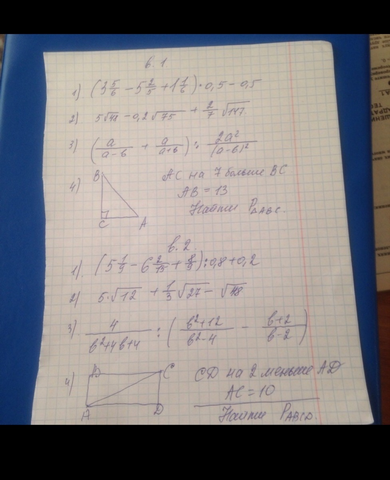 в. 1
1) (3 5/6 − 5 2/3 + 1 1/6) · 0,5 − 0,5
2) 5√48 − 0,2√75 + 2/7 √147
3) (a/(a−b) + a/(a+b)) : 2a²/(a−b)²
4) B
C A
AC на 7 больше BC
AB = 13
Найти P△ABC
в. 2
1) : 0,8 + 0,2
2) 5·√12 + 1/3 √27 − √48
3) 4/(b²+4b+4) : ((b²+12)/(b²−4) − (b+2)/(b−2))
4) B C
A D
CD на 2 меньше AD
AC = 10
Найти PABCD.